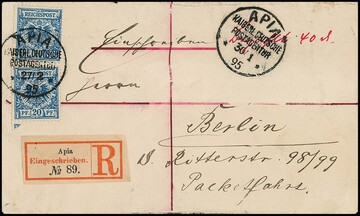 REICHSPOST
APIA
KAISERL. DEUTSCHE
POSTAGENTUR
27/2
95
20
PF
PF
Einschreiben
APIA
KAISERL. DEUTSCHE
POSTAGENTUR
30/1
95
Herrn
Apia
Eingeschrieben.
№ 89.
R
Berlin
Ritterstr 98/99
Packetfahrt.